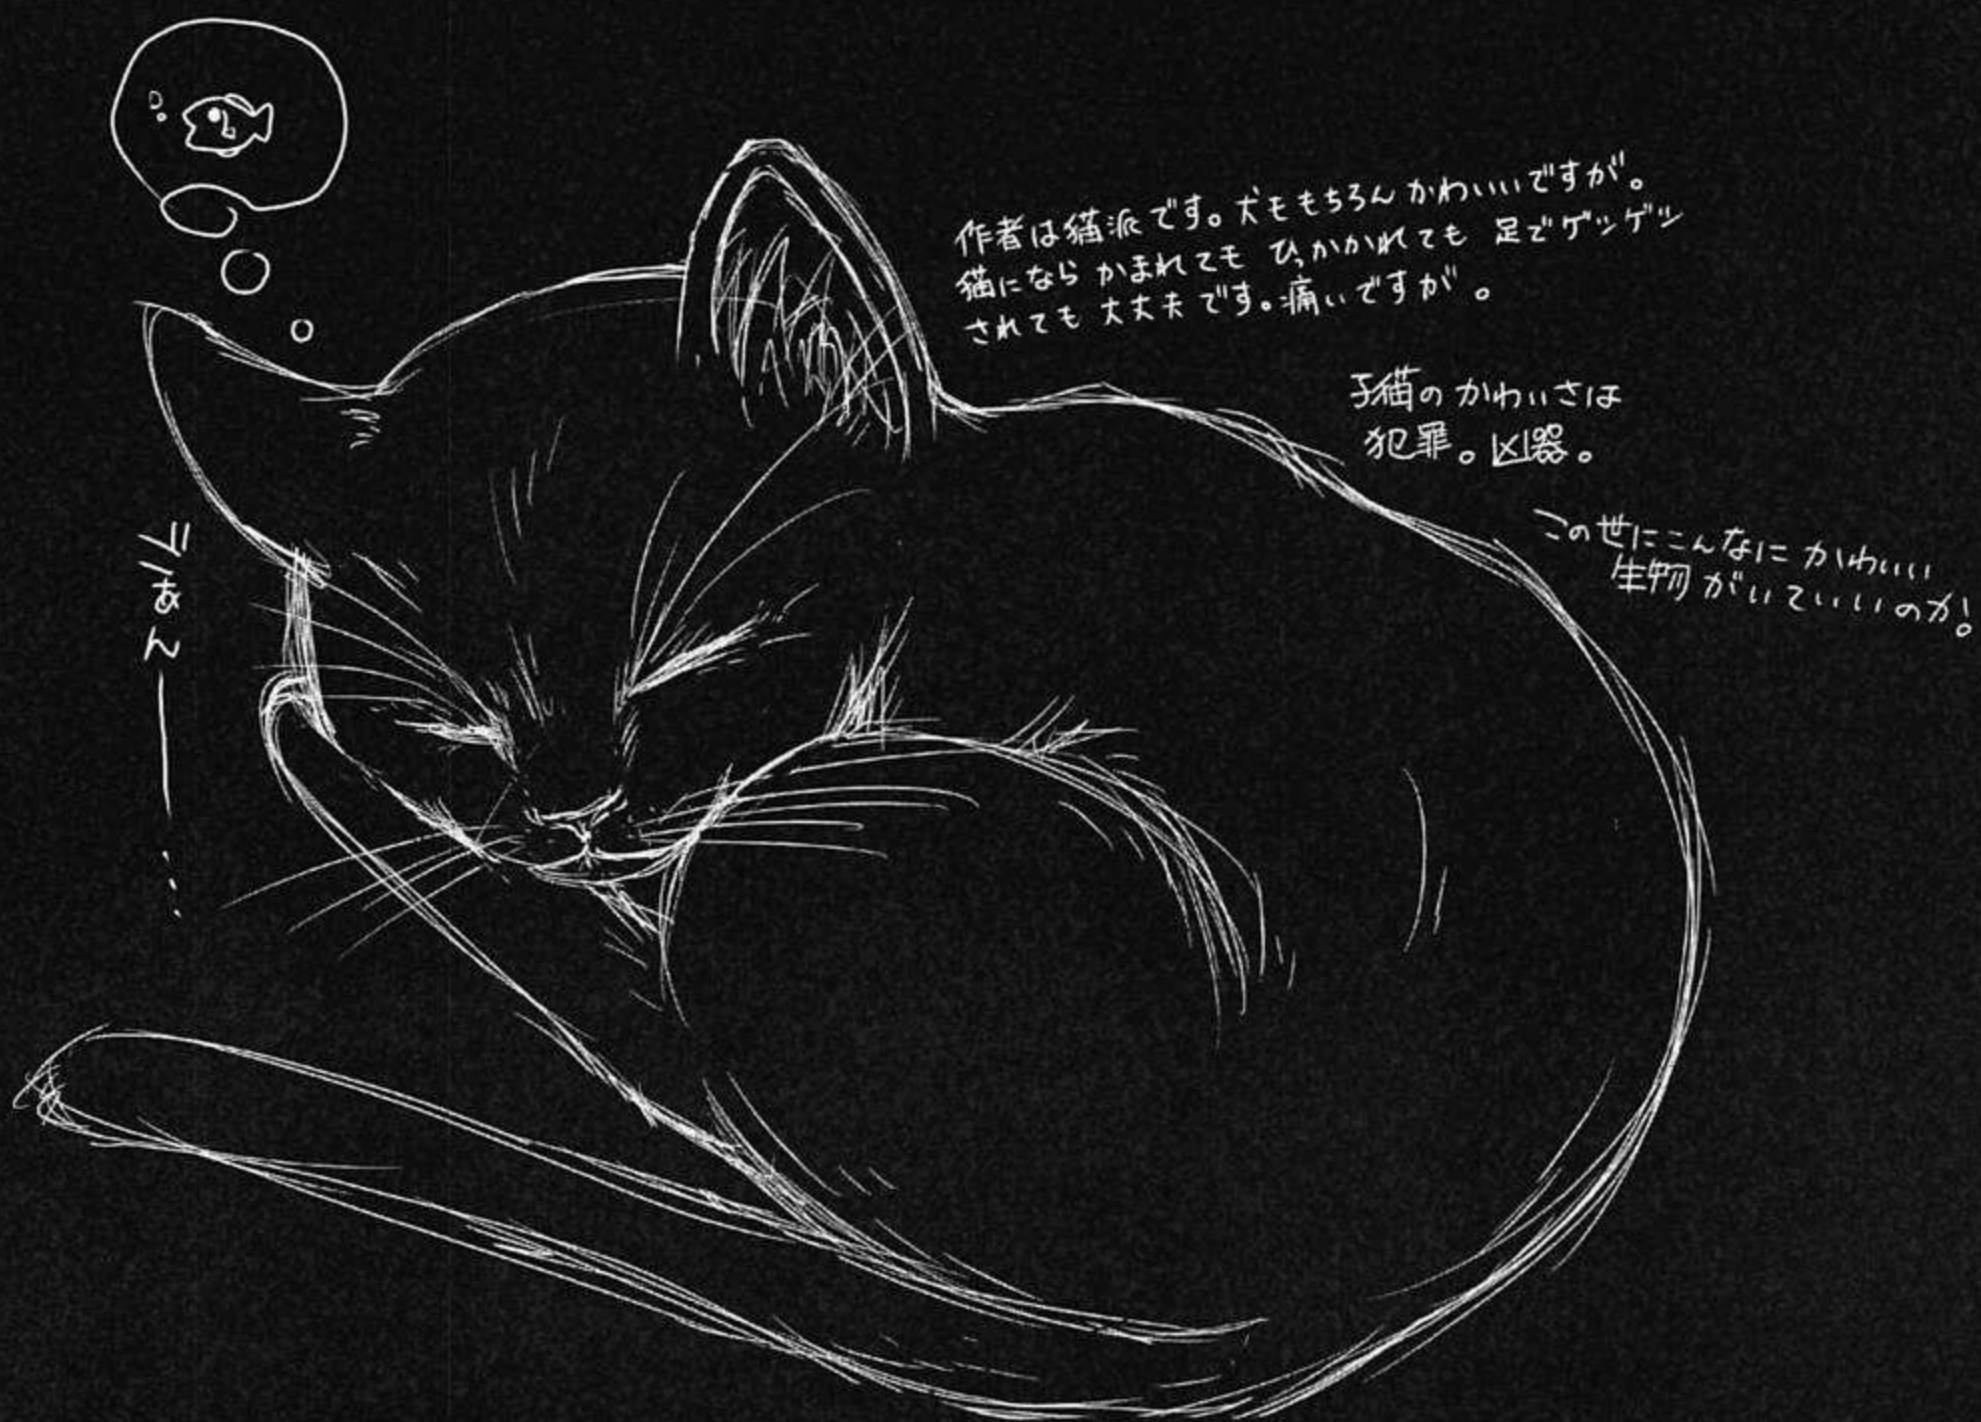 作者は猫派です。犬ももちろんかわいいですが。
猫にならかまれてもひっかかれても足でゲッゲシ
されても大丈夫です。痛いですが。
子猫のかわいさは
犯罪。凶器。
この世にこんなにかわいい
生物がいていいのか!。